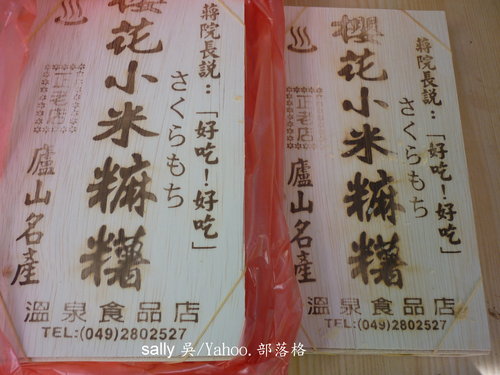 蔣院長説：「好吃！好吃」
さくらもち
櫻花小米糍糬
正老店
廬山名產
溫泉食品店
TEL:(049)2802527
蔣院長説：「好吃！好吃」
さくらもち
櫻花小米糍糬
正老店
廬山名產
溫泉食品店
TEL:(049)2802527
sally 吳/Yahoo.部落格